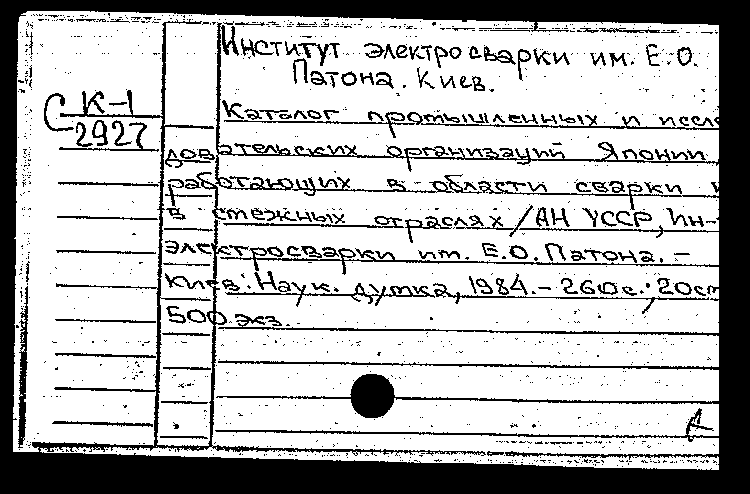 Институт электросварки им. Е.О.
Патона. Киев.
С К-1
2927
Каталог промышленных и иссле
довательских организаций Японии
работающих в области сварки и
в смежных отраслях / АН УССР, Ин-
электросварки им. Е.О. Патона. -
Киев: Наук. думка, 1984. - 260с.; 20см
500 экз.